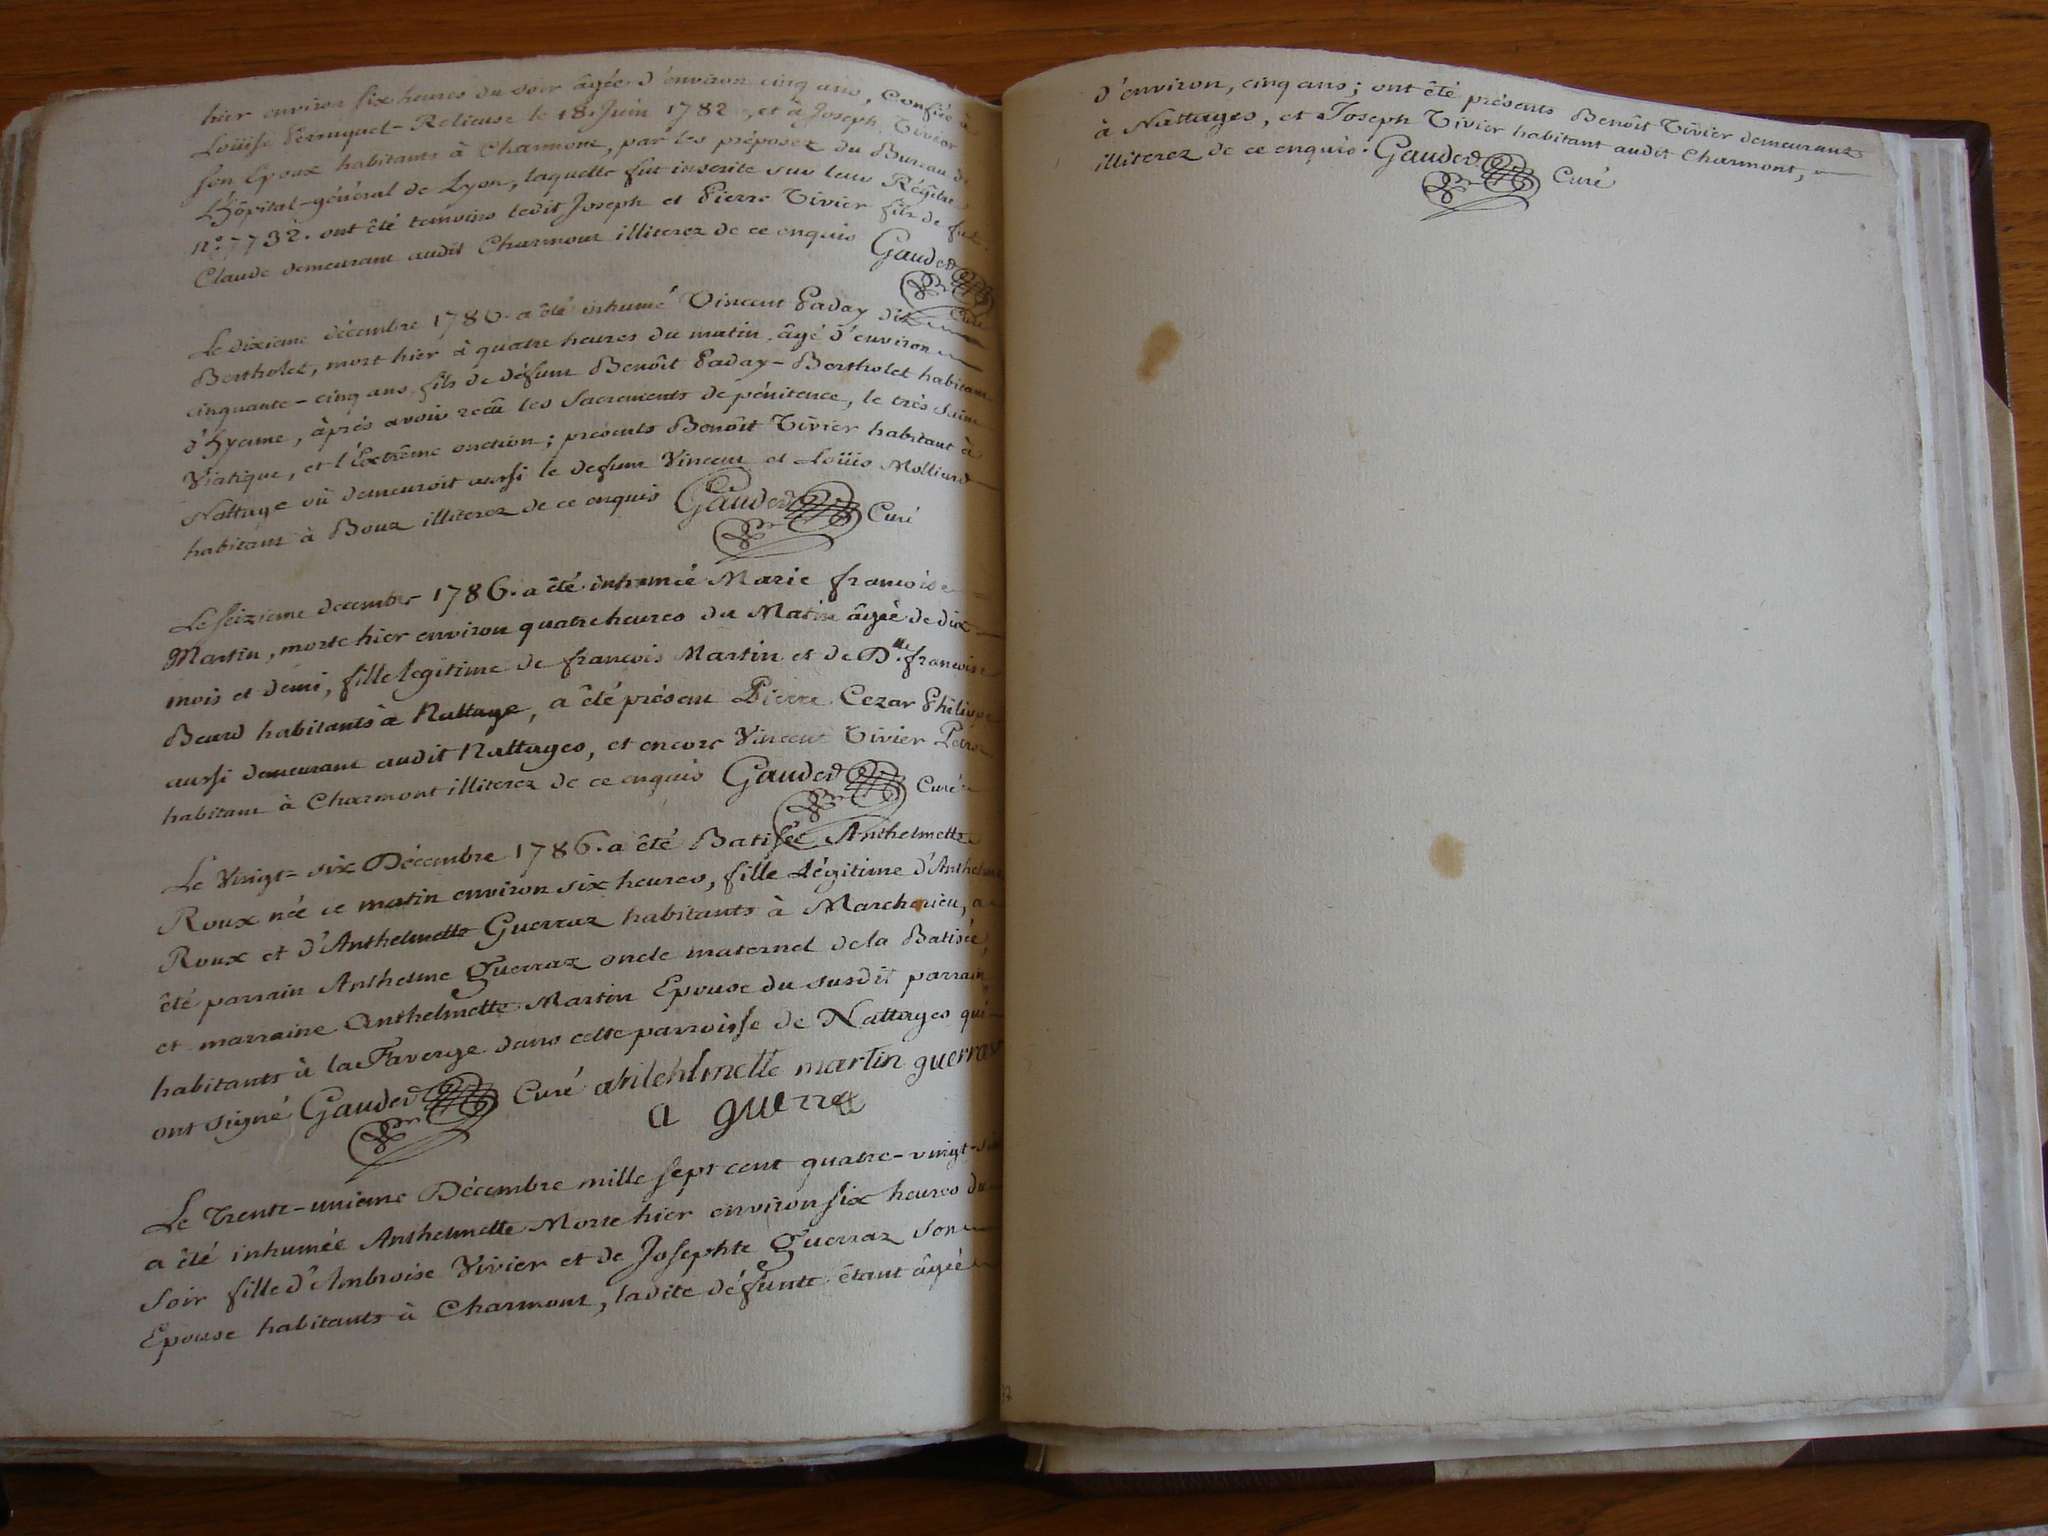 hier environ six heures du soir âgée d'environ cinq ans, confiée à
Loüise Perruquet-Relieuse le 18. Juin 1782., et à Joseph Vivier
son Epoux habitants à Charmont, par les préposez du Bureau de
L'hôpital-général de Lyon, laquelle fut inscrite sur leur Régitre
n.° 7732. ont été temoins ledit Joseph et Pierre Vivier fils de feu
Claude demeurant audit Charmont illiterez de ce enquis Gauded
Curé
Le dixieme décembre 1786. a été inhumé Vincent Paday dit
Bertholet, mort hier à quatre heures du matin, âgé d'environ
cinquante-cinq ans, fils de défunt Benoît Paday-Bertholet habitant
d'hyenne, àprés avoir recû les Sacrements de pénitence, le très saint
Viatique, et l'Extrême onction; presents Benoît Vivier habitant à
Nattage où demeuroit aussi le defunt Vincent et Loüis Molliard
habitant à Boux illiterez de ce enquis Gauded Curé
Le seizieme decembre 1786. a été inhumée Marie francoise
Martin, morte hier environ quatre heures du Matin âgée de dix
mois et demi, fille legitime de francois Martin et de D.lle francoise
Beard habitants à Nattage, a été présent Pierre Cezar Philippe
aussi demeurant audit Nattages, et encore Vincent Vivier
habitant à Charmont illiterez de ce enquis Gauded Curé
Le Vingt-six Décembre 1786. a été Batisée Anthelmette
Roux née ce matin environ six heures, fille Légitime d'Anthelme
Roux et d'Anthelmette Guerraz habitants à Marchenieu, a
été parrain Anthelme Guerraz oncle maternel de la Batisée,
et marraine Anthelmette Martin Epouse du susdit parrain,
habitants à la Faverge dans cette parroisse de Nattages qui
ont signé Gauded Curé antehlmette martin guerras
a guerra
Le Trente-unieme Décembre mille sept cent quatre-vingt-six
a été inhumée Anthelmette Morte hier environ six heures du
Soir fille d'Ambroise Vivier et de Josephte Guerraz son
Epouse habitants à Charmont, ladite défunte étant âgée
d'environ, cinq ans; ont été présents Benoît Vivier demeurant
à Nattages, et Joseph Vivier habitant audit Charmont,
illiterez de ce enquis. Gauded Curé